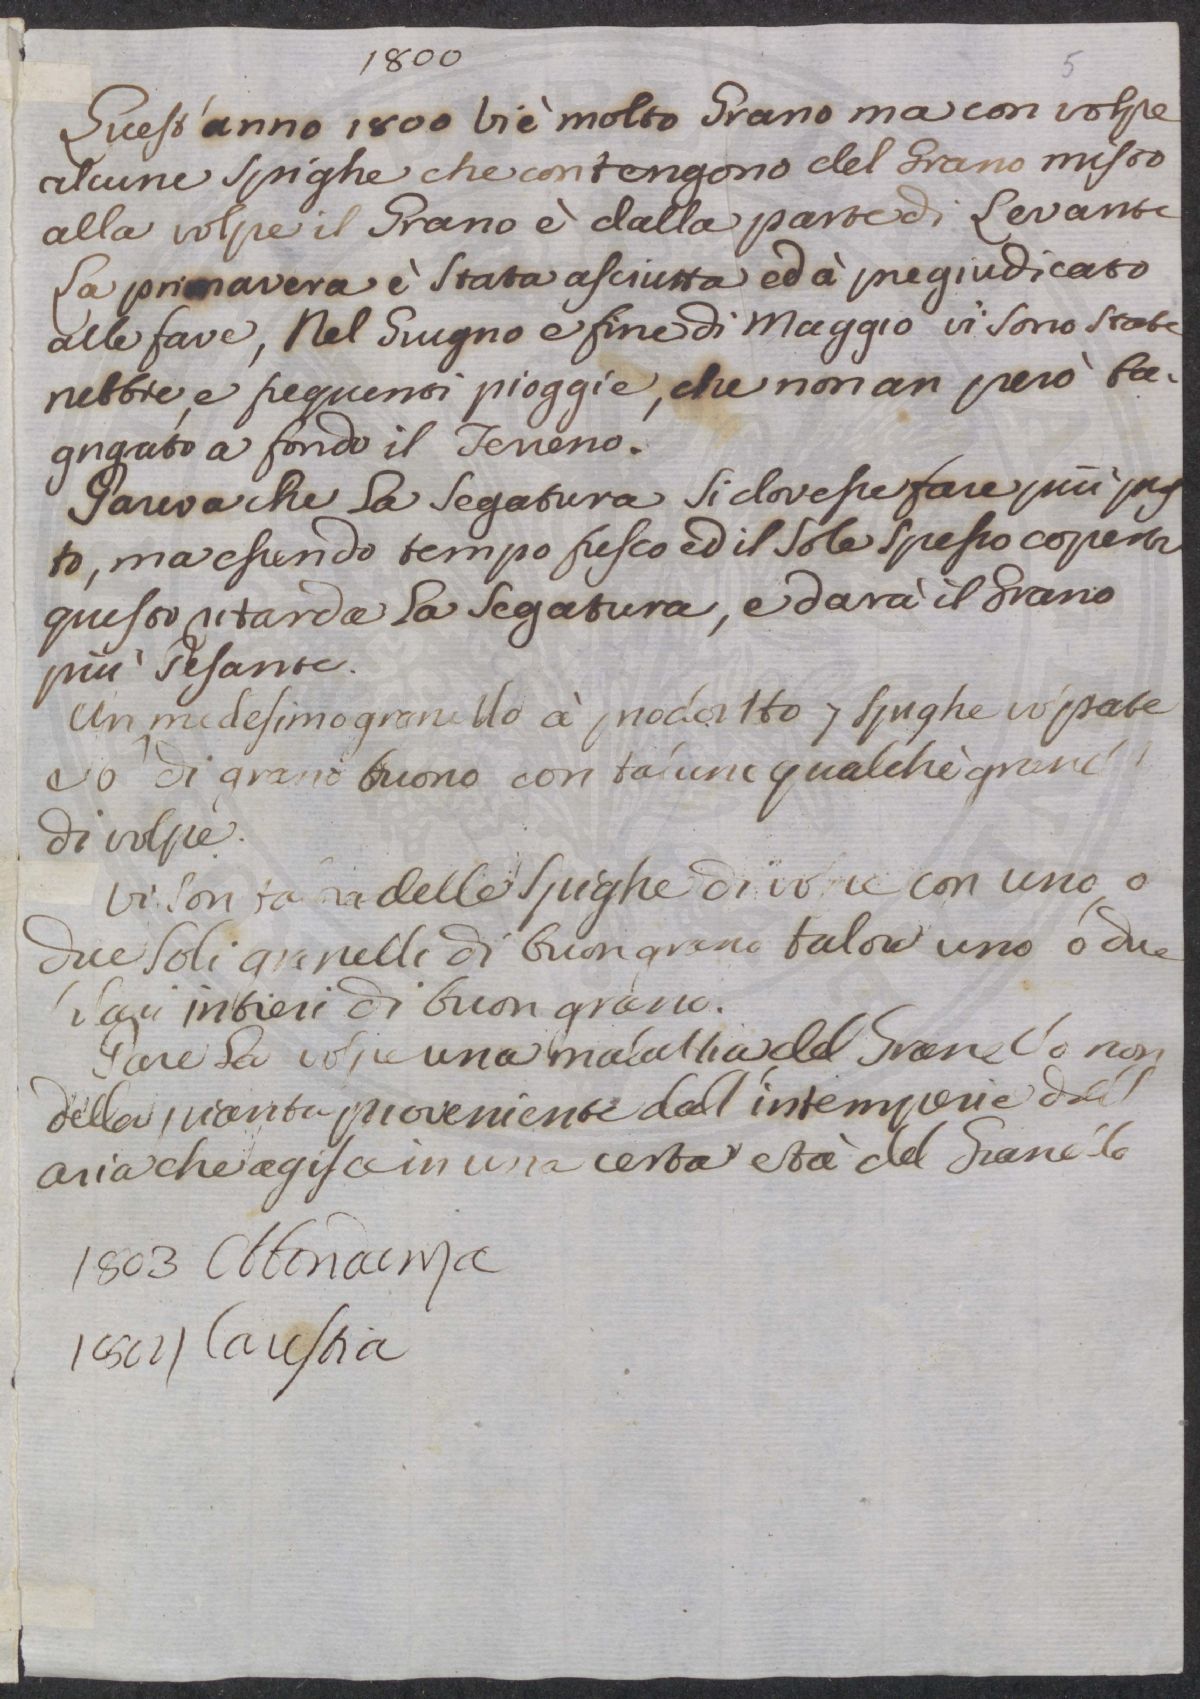 1800
5
Quest'anno 1800 vi è molto Grano ma con volpe
alcune Spighe che contengono del Grano misto
alla volpe il Grano è dalla parte di Levante
La primavera è Stata asciutta ed à pregiudicato
alle fave, Nel Giugno e fine di Maggio vi Sono State
nebbie, e frequenti pioggie, che non an però ba-
gngato a fondo il Terreno.
Pareva che La Segatura Si dovesse fare più pres
to, ma essendo tempo fresco ed il Sole Spesso coperto
questo ritarda La Segatura, e darà il Grano
più Pesante.
Un medesimo granello à prodotto 7 Spighe volpate
di grano buono con talune qualche granell
di volpe.
Vi Son delle Spighe di volpe con uno, o
due Soli granelli di buon grano talora uno o due
intieri di buon grano.
Pare La volpe una malattia del Granello non
della pianta proveniente dall'intemperie dell
aria che agisce in una certa età del Granello
1803 Abbondanza
Carestia